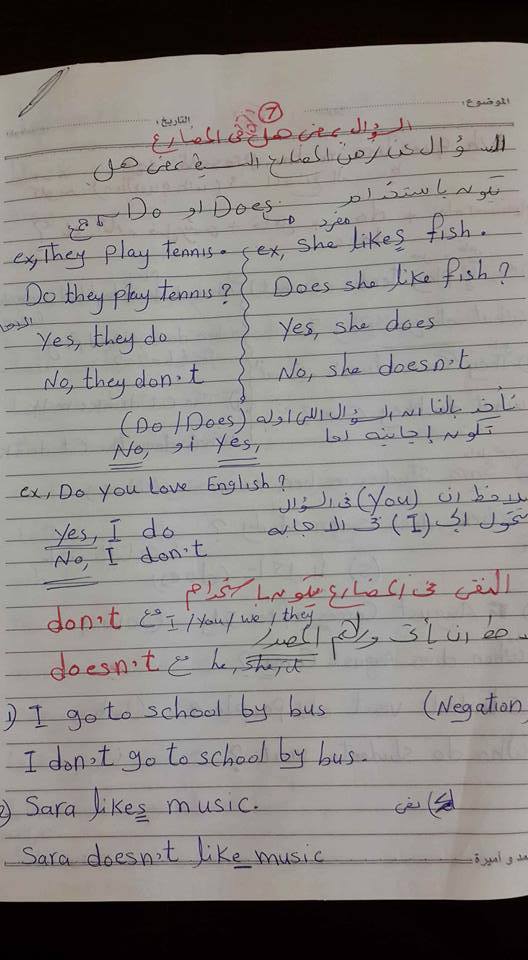 الموضوع: التاريخ:
7
السؤال بمعنى هل فى المضارع
السؤال عن زمن المضارع البسيط بمعنى هل
يكون باستخدام Do أو Does
جمع مفرد
ex, They play tennis. ex, she likes fish.
Do they play tennis? Does she like fish?
Yes, they do Yes, she does
No, they don't No, she doesn't
نأخذ بالنا ان السؤال اللى اوله (Do/Does)
تكون إجابته اما Yes, أو No,
ex, Do you love English?
يلاحظ ان (You) فى السؤال
تتحول إلى (I) فى الاجابه
Yes, I do
No, I don't
النفى فى المضارع يكون باستخدام
don't مع I / you / we / they
ان يأتى المصدر
doesn't مع he, she, it
1) I go to school by bus (Negation)
I don't go to school by bus.
2) Sara likes music. نفى
Sara doesn't like music